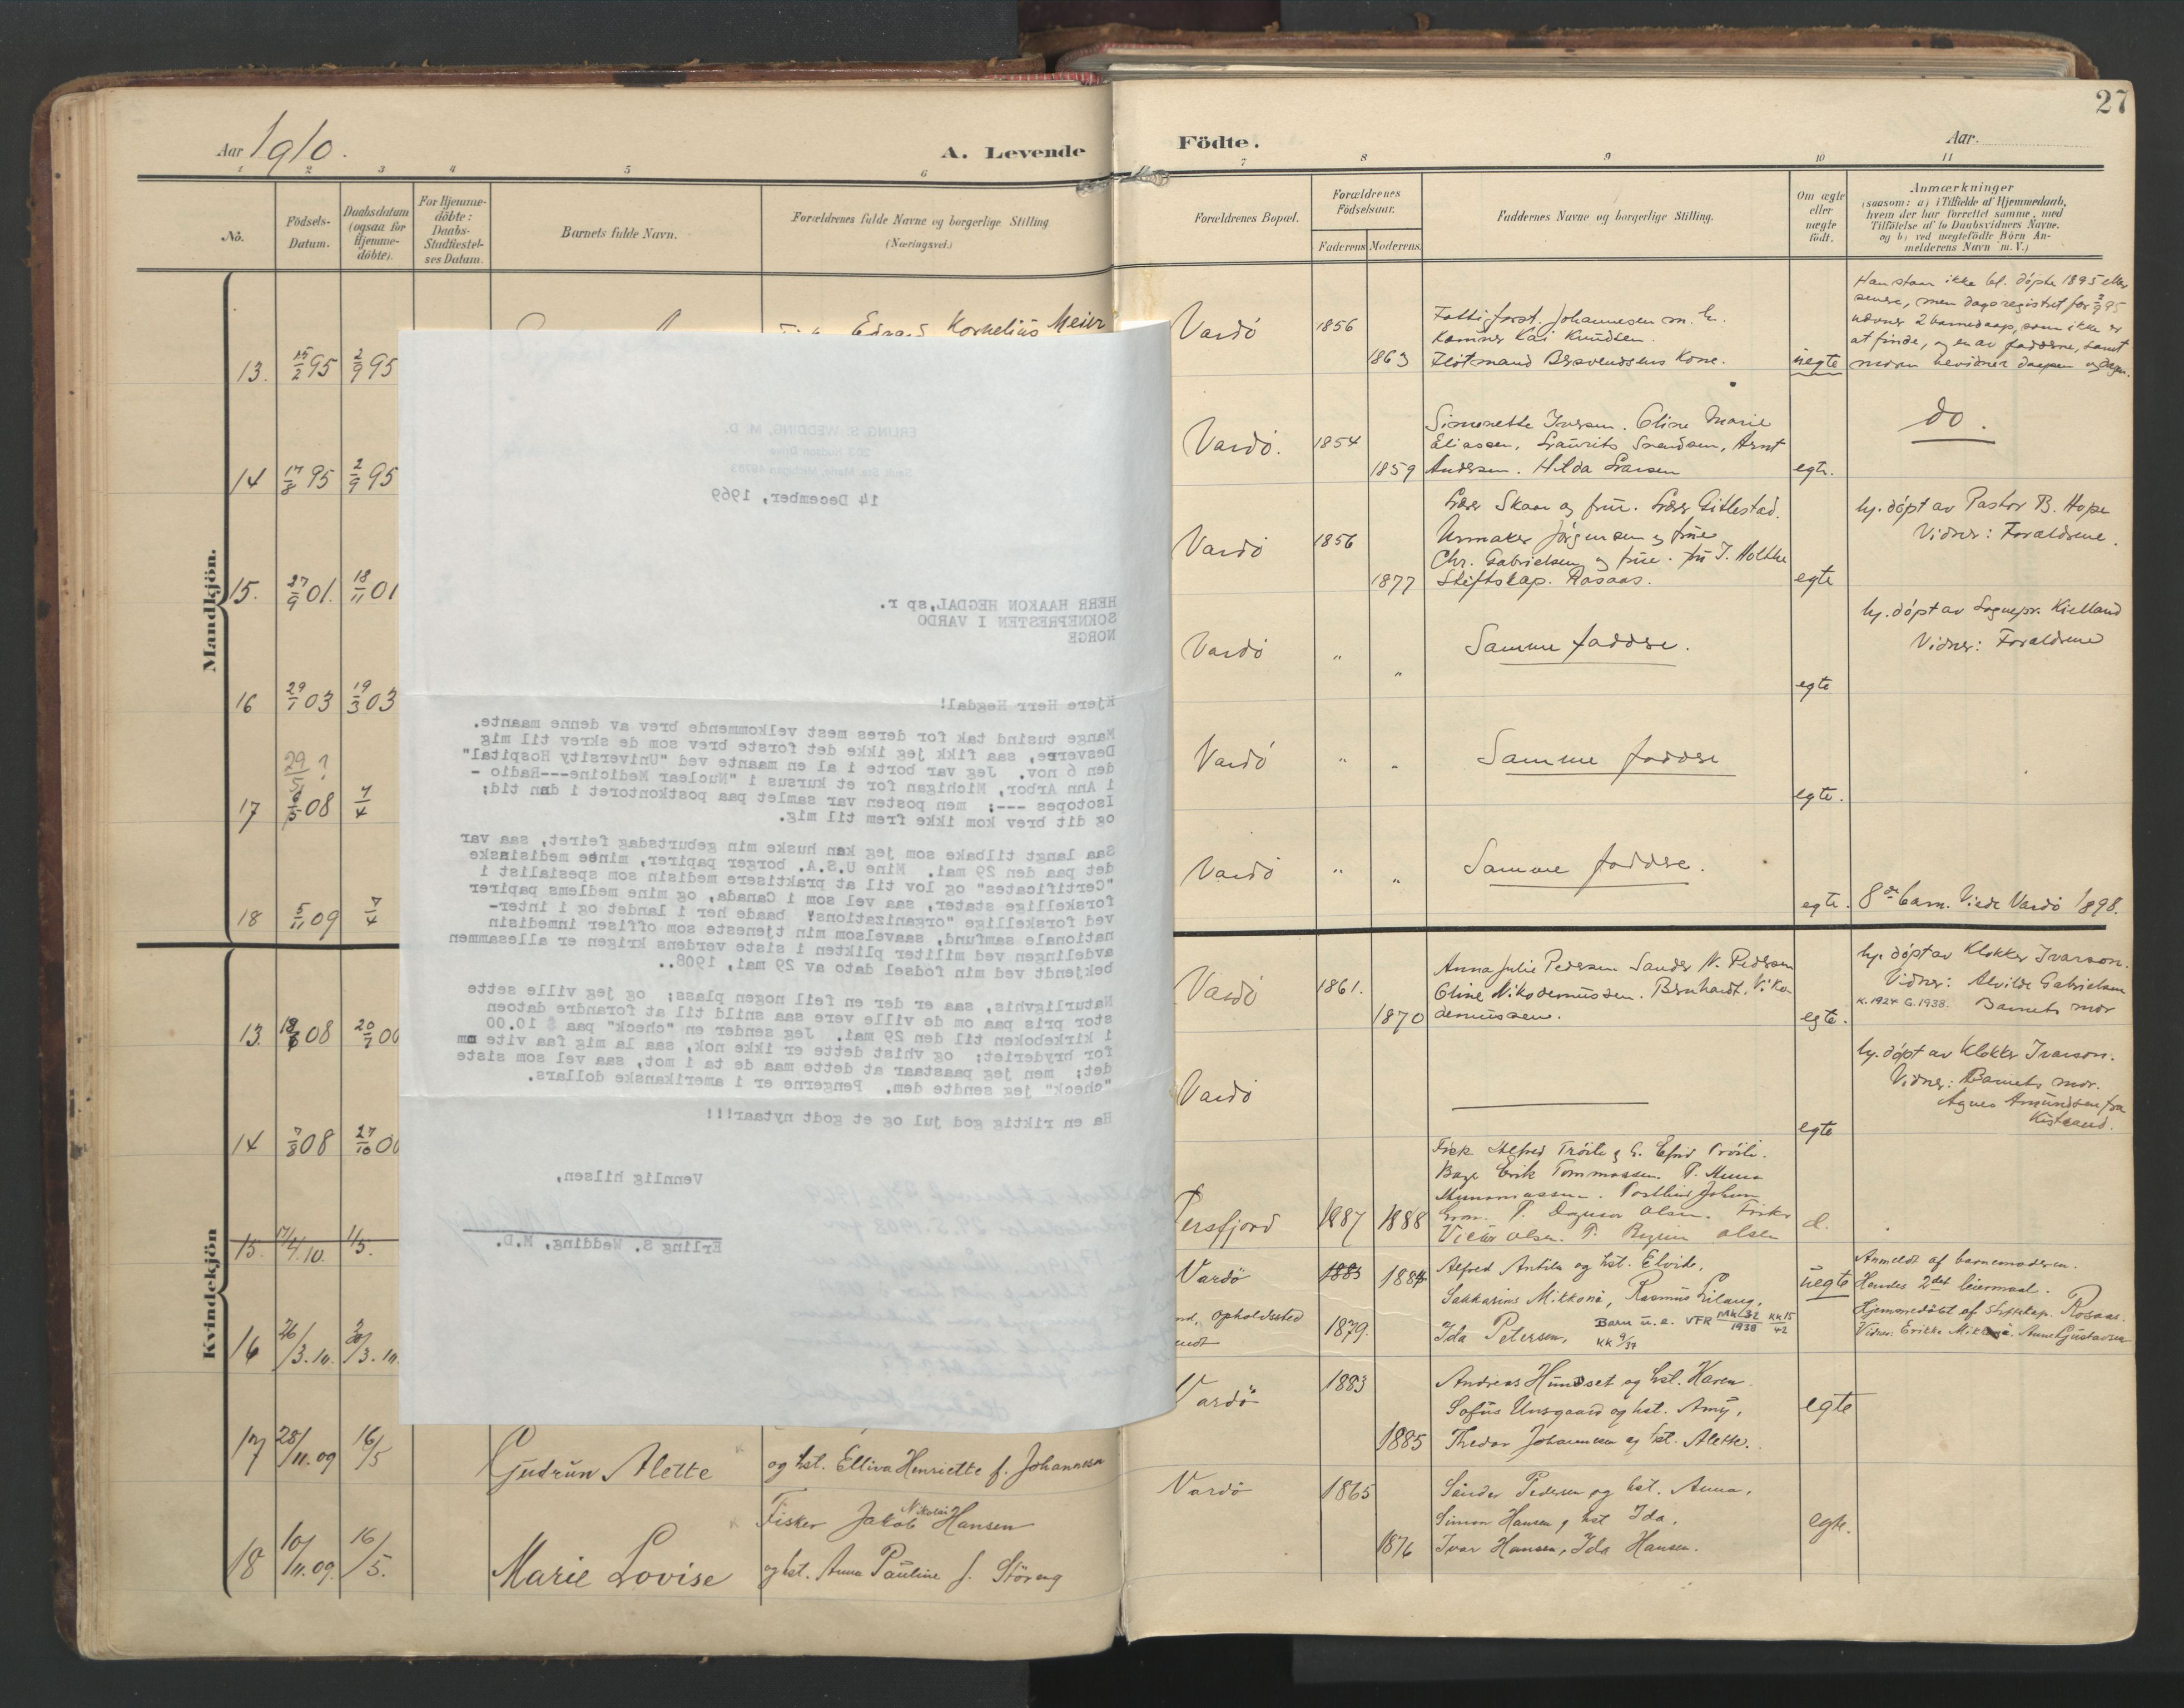 Aar 1910.
A. Levende
1 2 3 4 5 6
No.
Födsels-
Datum.
Daabsdatum
(ogsaa for
Hjemme-
döbte).
For Hjemme-
döbte:
Daabs-
Stadfæstel-
ses Datum.
Barnets fulde Navn.
Forældrenes fulde Navne og borgerlige Stilling
(Næringsvei.)
Mandkjön.
Edvard Kornelius Meier
13. 15/2 95 2/9 95
14 17/8 95 2/9 95
15. 27/9 01. 18/11 01
16 29/1 03 19/3 03
29/5 ?
17 08 7/4
18 5/11 09 7/4
Kvindekjön
13. 08 20/7
14 7/8 08 27/10
15. 17/4.10. 1/5.
16 26/3.10. 3.10.
17 28/11.09 16/5
Gudrun Alette
og hst. Elliva Henriette f. Johannesen
Fisker Jakob Nikolai Hansen
18 10/11.09. 16/5.
Marie Lovise
og hst. Anna Pauline f. Störeng
ERLING S. WEDDING, M. D.
203 Hudson Drive
Sault Ste. Marie, Michigan 49783
14 December, 1969
HERR HAAKON HEGDAL,sp r.
SOKNEPRESTEN I VARDO
NORGE
Kjere Herr Hegdal!
Mange tusind tak for deres mest velkommende brev av denne maante.
Desverre, saa fikk jeg ikke det forste brev som de skrev til mig
den 6 nov. Jeg var borte i al en maante ved "University Hospital"
i Ann Arbor, Michigan for et kursus i "Nuclear Medicine---Radio -
Isotopes ---; men posten var samlet paa postkontoret i den tid;
og dit brev kom ikke frem til mig.
Saa langt tilbake som jeg kan huske min geburtsdag feiret, saa var
det paa den 29 mai. Mine U.S.A. borger papirer, minte medisinske
"Certificates" og lov til at praktisere medisin som spesialist i
forskellige stater, saa vel som i Canada, og mine medlems papirer
ved forskellige "organizations" baade her i landet og i inter-
nationale samfund, saavelsom min tjeneste som offiser inmedisin
avdelingen ved militer plikten i siste verdens krigen er allesammen
bekjendt ved min fodsel dato av 29 mai, 1908..
Naturligvhis, saa er der en feil nogen plass; og jeg ville sette
stor pris paa om de ville vere saa snild til at forandre datoen
i kirkeboken til den 29 mai. Jeg sender en "check" paa $ 10.00
for bryderiet; og vhist dette er ikke nok, saa la mig faa vite om
det; men jeg paastaar at dette maa de ta i mot, saa vel som siste
"check" jeg sendte dem. Pengerne er i amerikanske dollars.
Ha en riktig god jul og et godt nytaar!!!
Vennlig hilsen,
Erling S. Wedding, M.D.
27
Födte.
Aar.
7 8 9 10 11
Forældrenes Bopæl.
Forældrenes
Födselsaar.
Faderens Moderens.
Faddernes Navne og borgerlige Stilling.
Om ægte
eller
uægte
födt.
Anmærkninger
(saasom: a) i Tilfælde af Hjemmedaab,
hvem der har forrettet samme, med
Tilföielse af to Daabsvidners Navne.
og b) ved uægtefödte Börn An-
melderens Navn m. V.)
Vardö 1856 1863
Fattigforst. Johannesen m. h.
Kæmner Kai Knudsen.
Kone.
uegte
Han staar ikke bl. döpte 1895 eller
senere, men dagsregistret for 2/9 95
nævner 2 barnedaap, som ikke er
at finde, og en av fadderne, samt
moren bevidner daapen
Vardö. 1854 1859
Simonette Iversen. Oline Marie
Eliassen, Laurits Svendsen, Arnt
Andersen. Hilda Larsen
egte.
do.
Vardö 1856 1877
Lærer Skaar og frue. Lærer Gitlestad.
Urmaker Jörgensen og frue
Chr. Gabrielsen og frue. fru J. Holtke
Stiftskap. Rosaas.
egte
hj. döpt av Pastor B. Hope
Vidner: Forældrene.
Vardö " "
Samme faddre.
egte
hj. döpt av Sognepr. Kielland
Vidner: Forældrene
Vardö " "
Samme faddre
egte.
Vardö " "
Samme faddre.
egte.
8de barn. Viede Vardö 1898.
Vardö 1861. 1870
Anna Julie Pedersen Sander N. Pedersen
Oline Nikodemussen. Bernhardt. Niko-
demussen.
egte.
hj. döpt av Klokker Ivarson.
Vidner: Alvilde Gabrielsen
K. 1924 G. 1938. Barnets mor
Vardö
egte
hj. döpt av Klokker Ivarson.
Vidner: Barnets mor.
Agnes Amundsen fra
Kistrand.
Persfjord 1887 1888
Olsen. Fisker
Victor Olsen. P. Olsen
Vardö 1883 1884
Alfred Antila og hst. Elvide,
Sakkarias Mikkonä, Rasmus
opholdssted 1879.
Ida Petersen,
Barn u. e. VFR 1938
KK 9/37 KK 15/42
uegte
Anmeldt af barnemoderen.
Hendes 2det leiermaal.
Hjemmedöbt af stiftskap. Rosaas.
Vidner: Erikke Mikkonä. Anne Gustavsen
Vardö 1883 1885
Andreas Hundset og hst. Karen.
Sofus Unsgaard og hst. Amy,
Thedor Johannesen og hst. Alette.
egte
Vardö 1865 1876
Sander Pedersen og hst. Anna,
Simon Hansen og hst Ida,
Ivar Hansen, Ida Hansen.
egte.